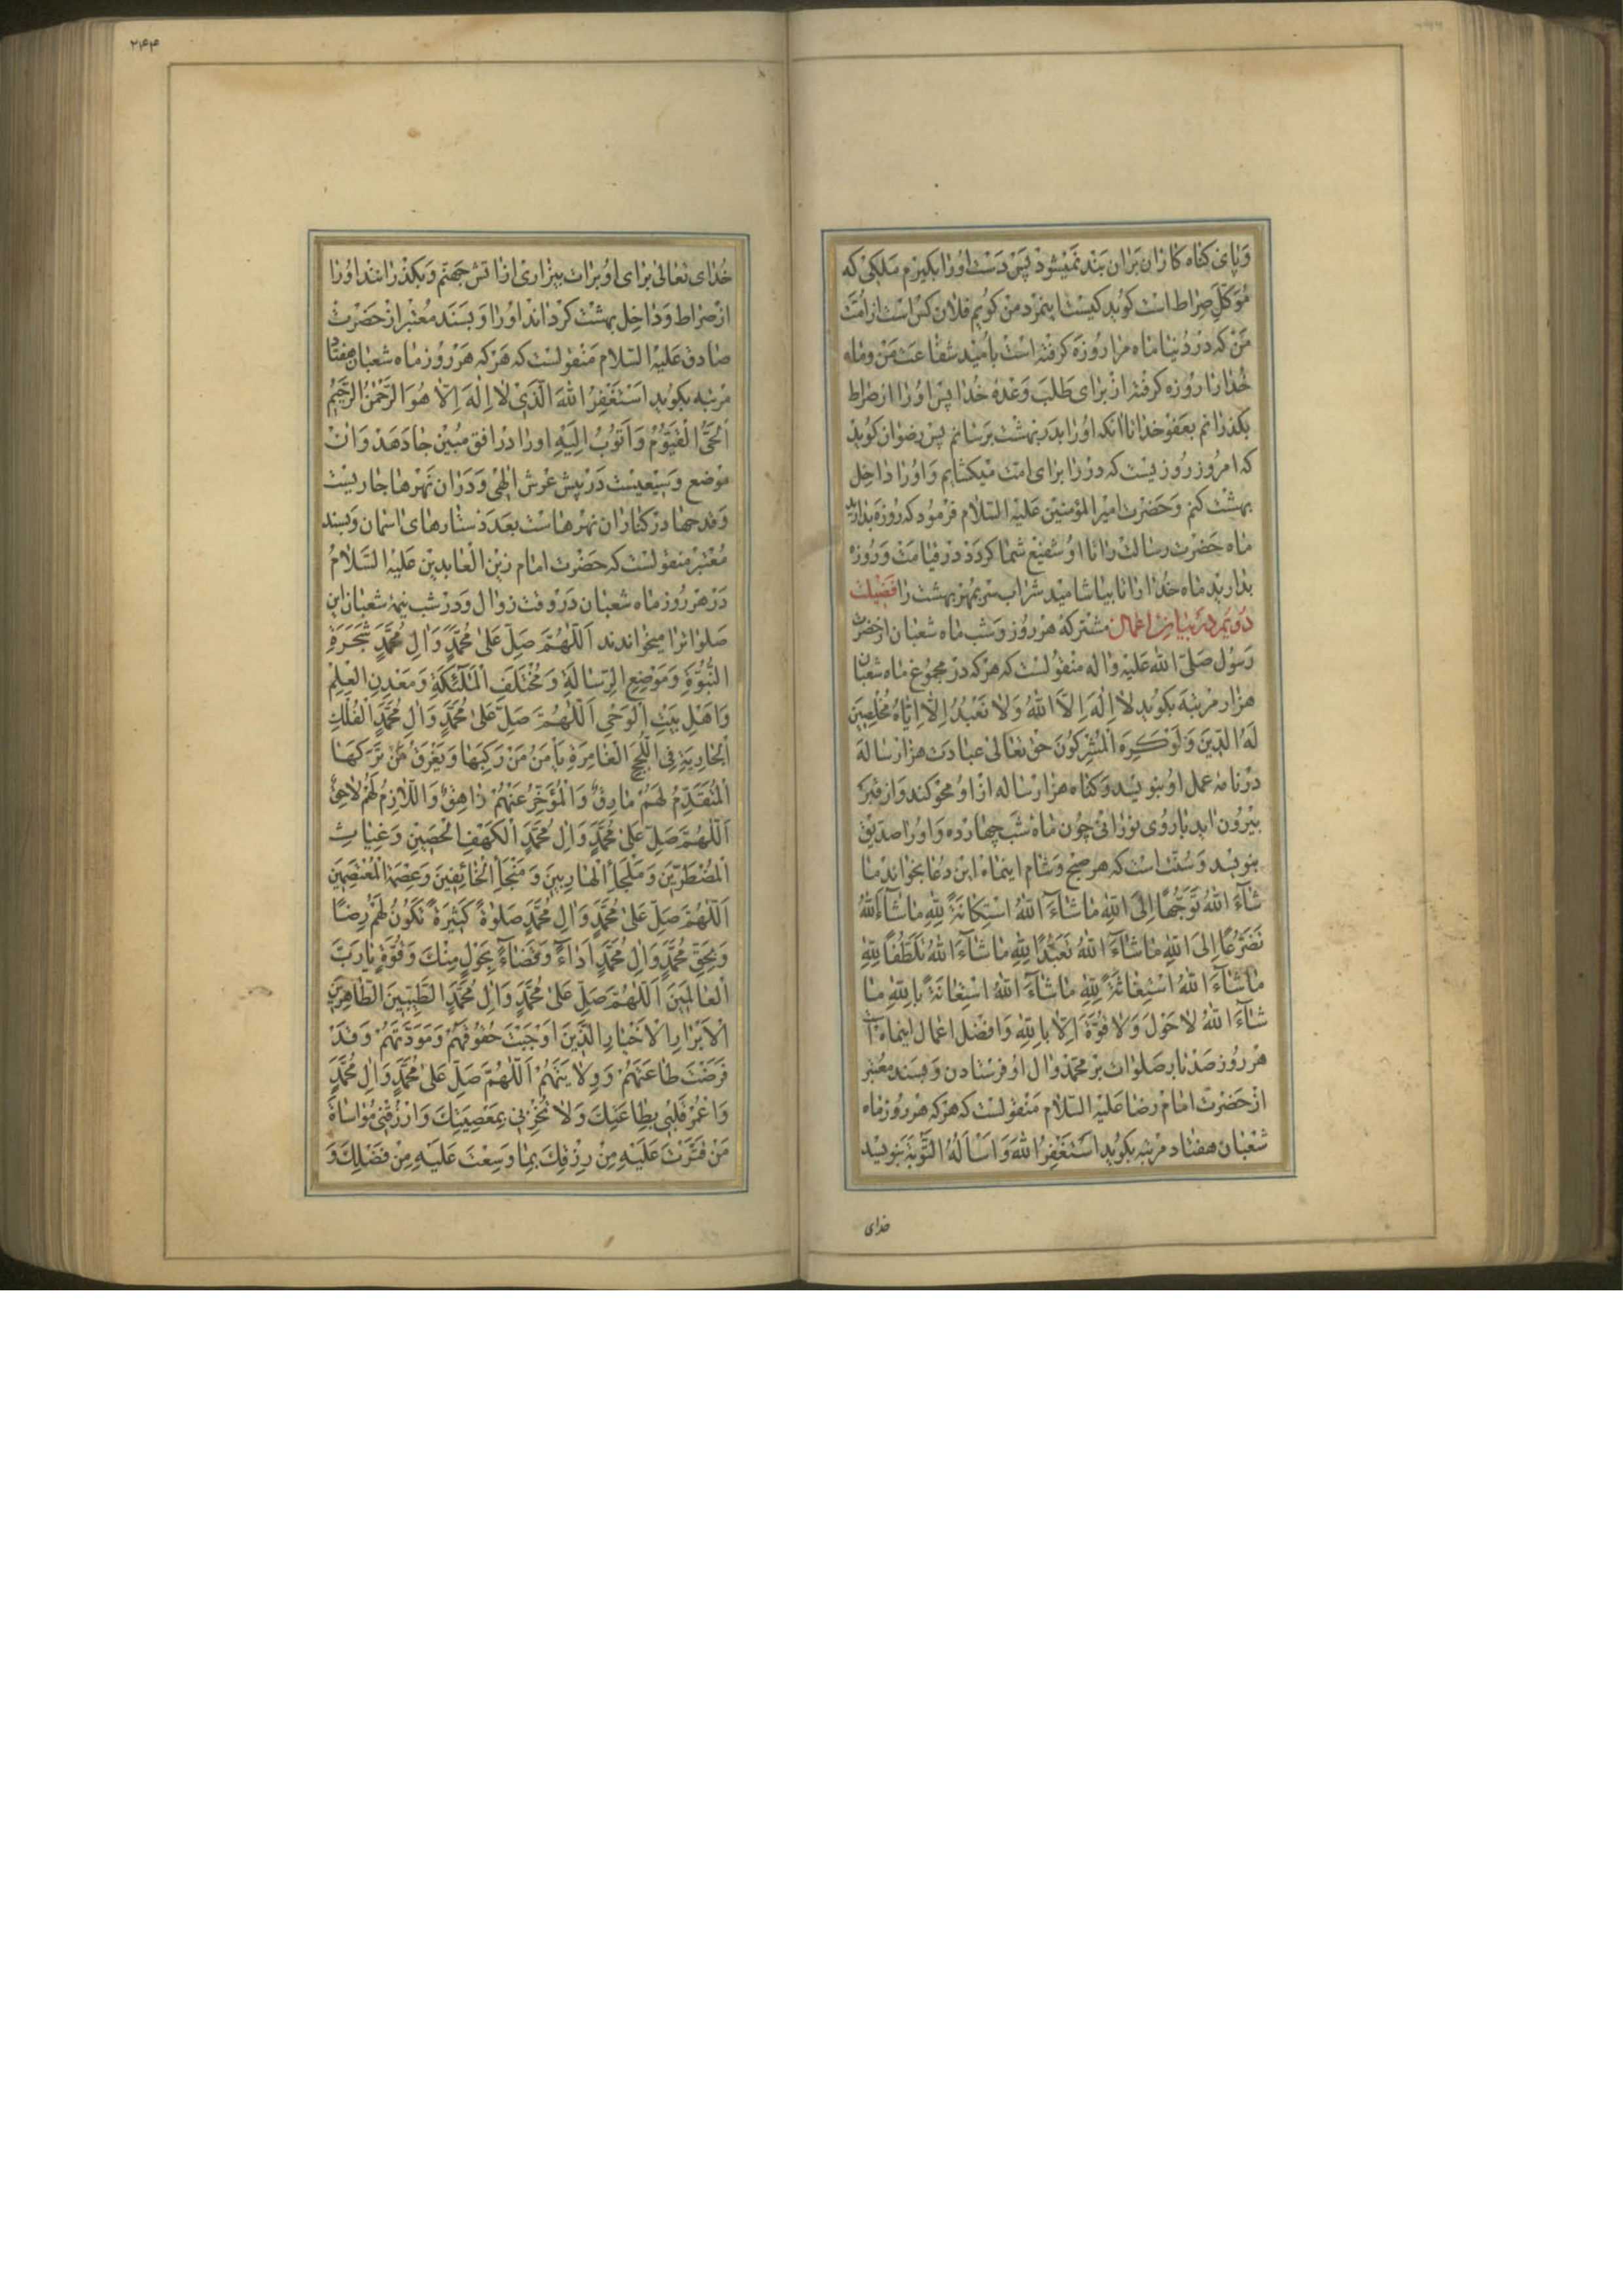 وَپای کناه کاران بران بند نمیشود پس دست اورا بکیرم ملکی که
مُوَکَّلِ صِراط است کوید کیست اینمرد من کویم فلان کس است از امّت
من که در دنیا ماه مرا روزه کرفته است بامّید شفاعت من وماه
خدا را روزه کرفته از برای طلب وعدۀ خدا پس اورا از صراط
بکذرانم بعفو خدا تا آنکه اورا بدر بهشت برسانم پس رضوان کوید
که امروز روزیست که در را برای امّت میکشایم واورا داخل
بهشت کنم وحضرت امیرالمؤمنین علیه السّلام فرمود که روزه بدارید
ماه حضرت رسالت را تا او شفیع شما کردد در قیامت وروزه
بدارید ماه خدا را تا بیاشامید شراب سر بمهر بهشت را فضیلت
دویم در بیان اعمال مشترکه هر روز وشب ماه شعبان از حضرت
رسول صلّی الله علیه واله منقولست که هر که در مجموع ماه شعبان
هزار مرتبه بکوید لا اِلٰهَ اِلَّا اللهُ وَلا نَعْبُدُ اِلّا اِیّاهُ مُخْلِصینَ
لَهُ الدّینَ وَلَوْ کَرِهَ الْمُشْرِکُونَ حق تعالی عبادت هزار ساله
در نامۀ عمل او بنویسد وکناه هزار ساله از او محو کند واز قبر
بیرون اید با روی نورانی چون ماه شب چهارده واورا صدّیق
بنویسد وسنّت است که هر صبح وشام اینماه این دعا بخواند ما
شآءَ اللهُ تَوَجُّهًا اِلَی اللهِ ما شآءَ اللهُ اسْتِکانَةً لِلّهِ ما شآءَ اللهُ
تَضَرُّعًا اِلَی اللهِ ما شآءَ اللهُ تَعَبُّدًا لِلّهِ ما شآءَ اللهُ تَلَطُّفًا لِلّهِ
ما شآءَ اللهُ اسْتِغاثَةً لِلّهِ ما شآءَ اللهُ اسْتِعانَةً بِاللهِ ما
شآءَ اللهُ لا حَوْلَ وَلا قُوَّةَ اِلّا بِاللهِ وافضل اعمال اینماه
هر روز صد بار صلوات بر محمّد وال او فرستادن وبسند معتبر
از حضرت امام رضا علیه السّلام منقولست که هر که هر روز ماه
شعبان هفتاد مرتبه بکوید اَسْتَغْفِرُ اللهَ وَاَسْاَلُهُ التَّوْبَةَ بنویسد
خدای
۲۴۴
خدای تعالی برای او برات بیزاری از اتش جهنّم وبکذرانند اورا
از صراط وداخل بهشت کرداند اورا وبسند معتبر از حضرت
صادق علیه السّلام منقولست که هر که هر روز ماه شعبان هفتاد
مرتبه بکوید اَسْتَغْفِرُ اللهَ الَّذی لا اِلٰهَ اِلّا هُوَ الرَّحْمٰنُ الرَّحیمُ
اَلْحَیُّ الْقَیُّومُ وَاَتُوبُ اِلَیْهِ اورا در افق مبین جا دهد وان
موضع وسیعیست در پیش عرش الٰهی ودران نهرها جاریست
وقدحها در کنار ان نهرهاست بعدد ستارهای اسمان وبسند
معتبر منقولست که حضرت امام زین العابدین علیه السّلامُ
در هر روز ماه شعبان در وقت زوال ودر شب نیمۀ شعبان این
صلوات را میخواندند اَللّهُمَّ صَلِّ عَلی مُحَمَّدٍ وَالِ مُحَمَّدٍ شَجَرَةِ
النُّبُوَّةِ وَمَوْضِعِ الرِّسالَةِ وَمُخْتَلَفِ الْمَلٰئِکَةِ وَمَعْدِنِ الْعِلْمِ
وَاَهْلِ بَیْتِ الْوَحْیِ اَللّهُمَّ صَلِّ عَلی مُحَمَّدٍ وَالِ مُحَمَّدٍ الْفُلْکِ
الْجارِیَةِ فِی اللُّجَجِ الْغامِرَةِ یَاْمَنُ مَنْ رَکِبَها وَیَغْرَقُ مَنْ تَرَکَهَا
الْمُتَقَدِّمُ لَهُمْ مارِقٌ وَالْمُؤَخِّرُ عَنْهُمْ زاهِقٌ وَاللّازِمُ لَهُمْ لاحِقٌ
اَللّهُمَّ صَلِّ عَلی مُحَمَّدٍ وَالِ مُحَمَّدٍ الْکَهْفِ الْحَصینِ وَغِیاثِ
الْمُضْطَرّینَ وَمَلْجَأِ الْهارِبینَ وَمَنْجَأِ الْخائِفینَ وَعِصْمَةِ الْمُعْتَصِمینَ
اَللّهُمَّ صَلِّ عَلی مُحَمَّدٍ وَالِ مُحَمَّدٍ صَلٰوةً کَثیرَةً تَکُونُ لَهُمْ رِضًا
وَلِحَقِّ مُحَمَّدٍ وَالِ مُحَمَّدٍ اَداءً وَقَضاءً بِحَوْلٍ مِنْکَ وَقُوَّةٍ یا رَبَّ
الْعالَمینَ اَللّهُمَّ صَلِّ عَلی مُحَمَّدٍ وَالِ مُحَمَّدٍ الطَّیِّبینَ الطّاهِرینَ
الْاَبْرارِ الْاَخْیارِ الَّذینَ اَوْجَبْتَ حُقُوقَهُمْ وَمَوَدَّتَهُمْ وَقَدْ
فَرَضْتَ طاعَتَهُمْ وَوِلایَتَهُمْ اَللّهُمَّ صَلِّ عَلی مُحَمَّدٍ وَالِ مُحَمَّدٍ
وَاعْمُرْ قَلْبی بِطاعَتِکَ وَلا تُخْزِنی بِمَعْصِیَتِکَ وَارْزُقْنی مُؤاساةَ
مَنْ قَتَّرْتَ عَلَیْهِ مِنْ رِزْقِکَ بِما وَسَّعْتَ عَلَیَّ مِنْ فَضْلِکَ وَ